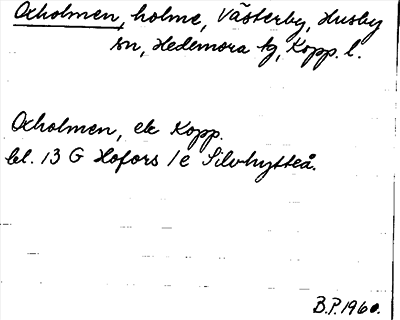 Oxholmen, holme, Västerby, Husby
sn, Hedemora tg, Kopp. l.
Oxholmen, ek Kopp.
bl. 13 G Hofors 1 e Silvhytteå.
B.P. 1960.